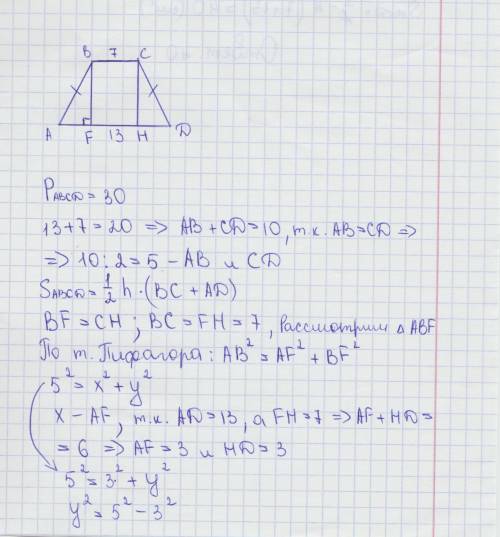 B 7 C
A F 13 H D
P ABCD = 30
13+7=20 => AB+CD=10, т.к. AB=CD =>
=> 10:2=5 – AB и CD
S ABCD = 1/2 h·(BC + AD)
BF=CH; BC=FH=7, Рассмотрим △ABF
По т. Пифагора: AB²=AF²+BF²
5²=x²+y²
X – AF, т.к. AD=13, а FH=7 => AF+HD=
=6 => AF=3 и HD=3
5²=3²+y²
y²=5²-3²